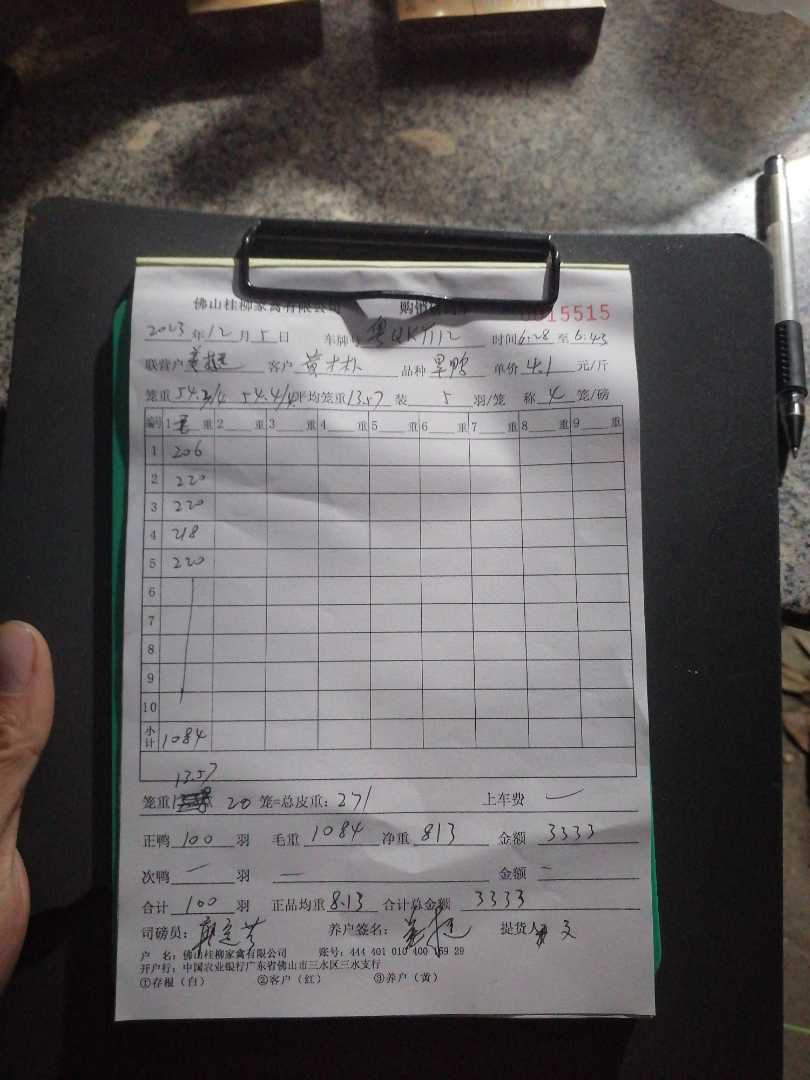 佛山桂柳家禽有限公司 购销 0015515
2023年12月5日 车牌号 粤QK7112 时间6:28至6:43
联营户 客户 黄木朴 品种 单价 4.1 元/斤
笼重 54.3/4 54.4/4 平均笼重 13.57 装 5 羽/笼 称 4 笼/磅
编号 1 毛 重 2 重 3 重 4 重 5 重 6 重 7 重 8 重 9 重
1 206
2 220
3 220
4 218
5 220
6
7
8
9
10
小计 1084
13.57
笼重 20 笼=总皮重: 271 上车费 一
正鸭 100 羽 毛重 1084 净重 813 金额 3333
次鸭 一 羽 一 金额 -
合计 100 羽 正品均重 8.13 合计总金额 3333
司磅员: 养户签名: 提货人
户 名: 佛山桂柳家禽有限公司 账号: 444 401 010 400 169 29
开户行: 中国农业银行广东省佛山市三水区三水支行
①存根（白） ②客户（红） ③养户（黄）